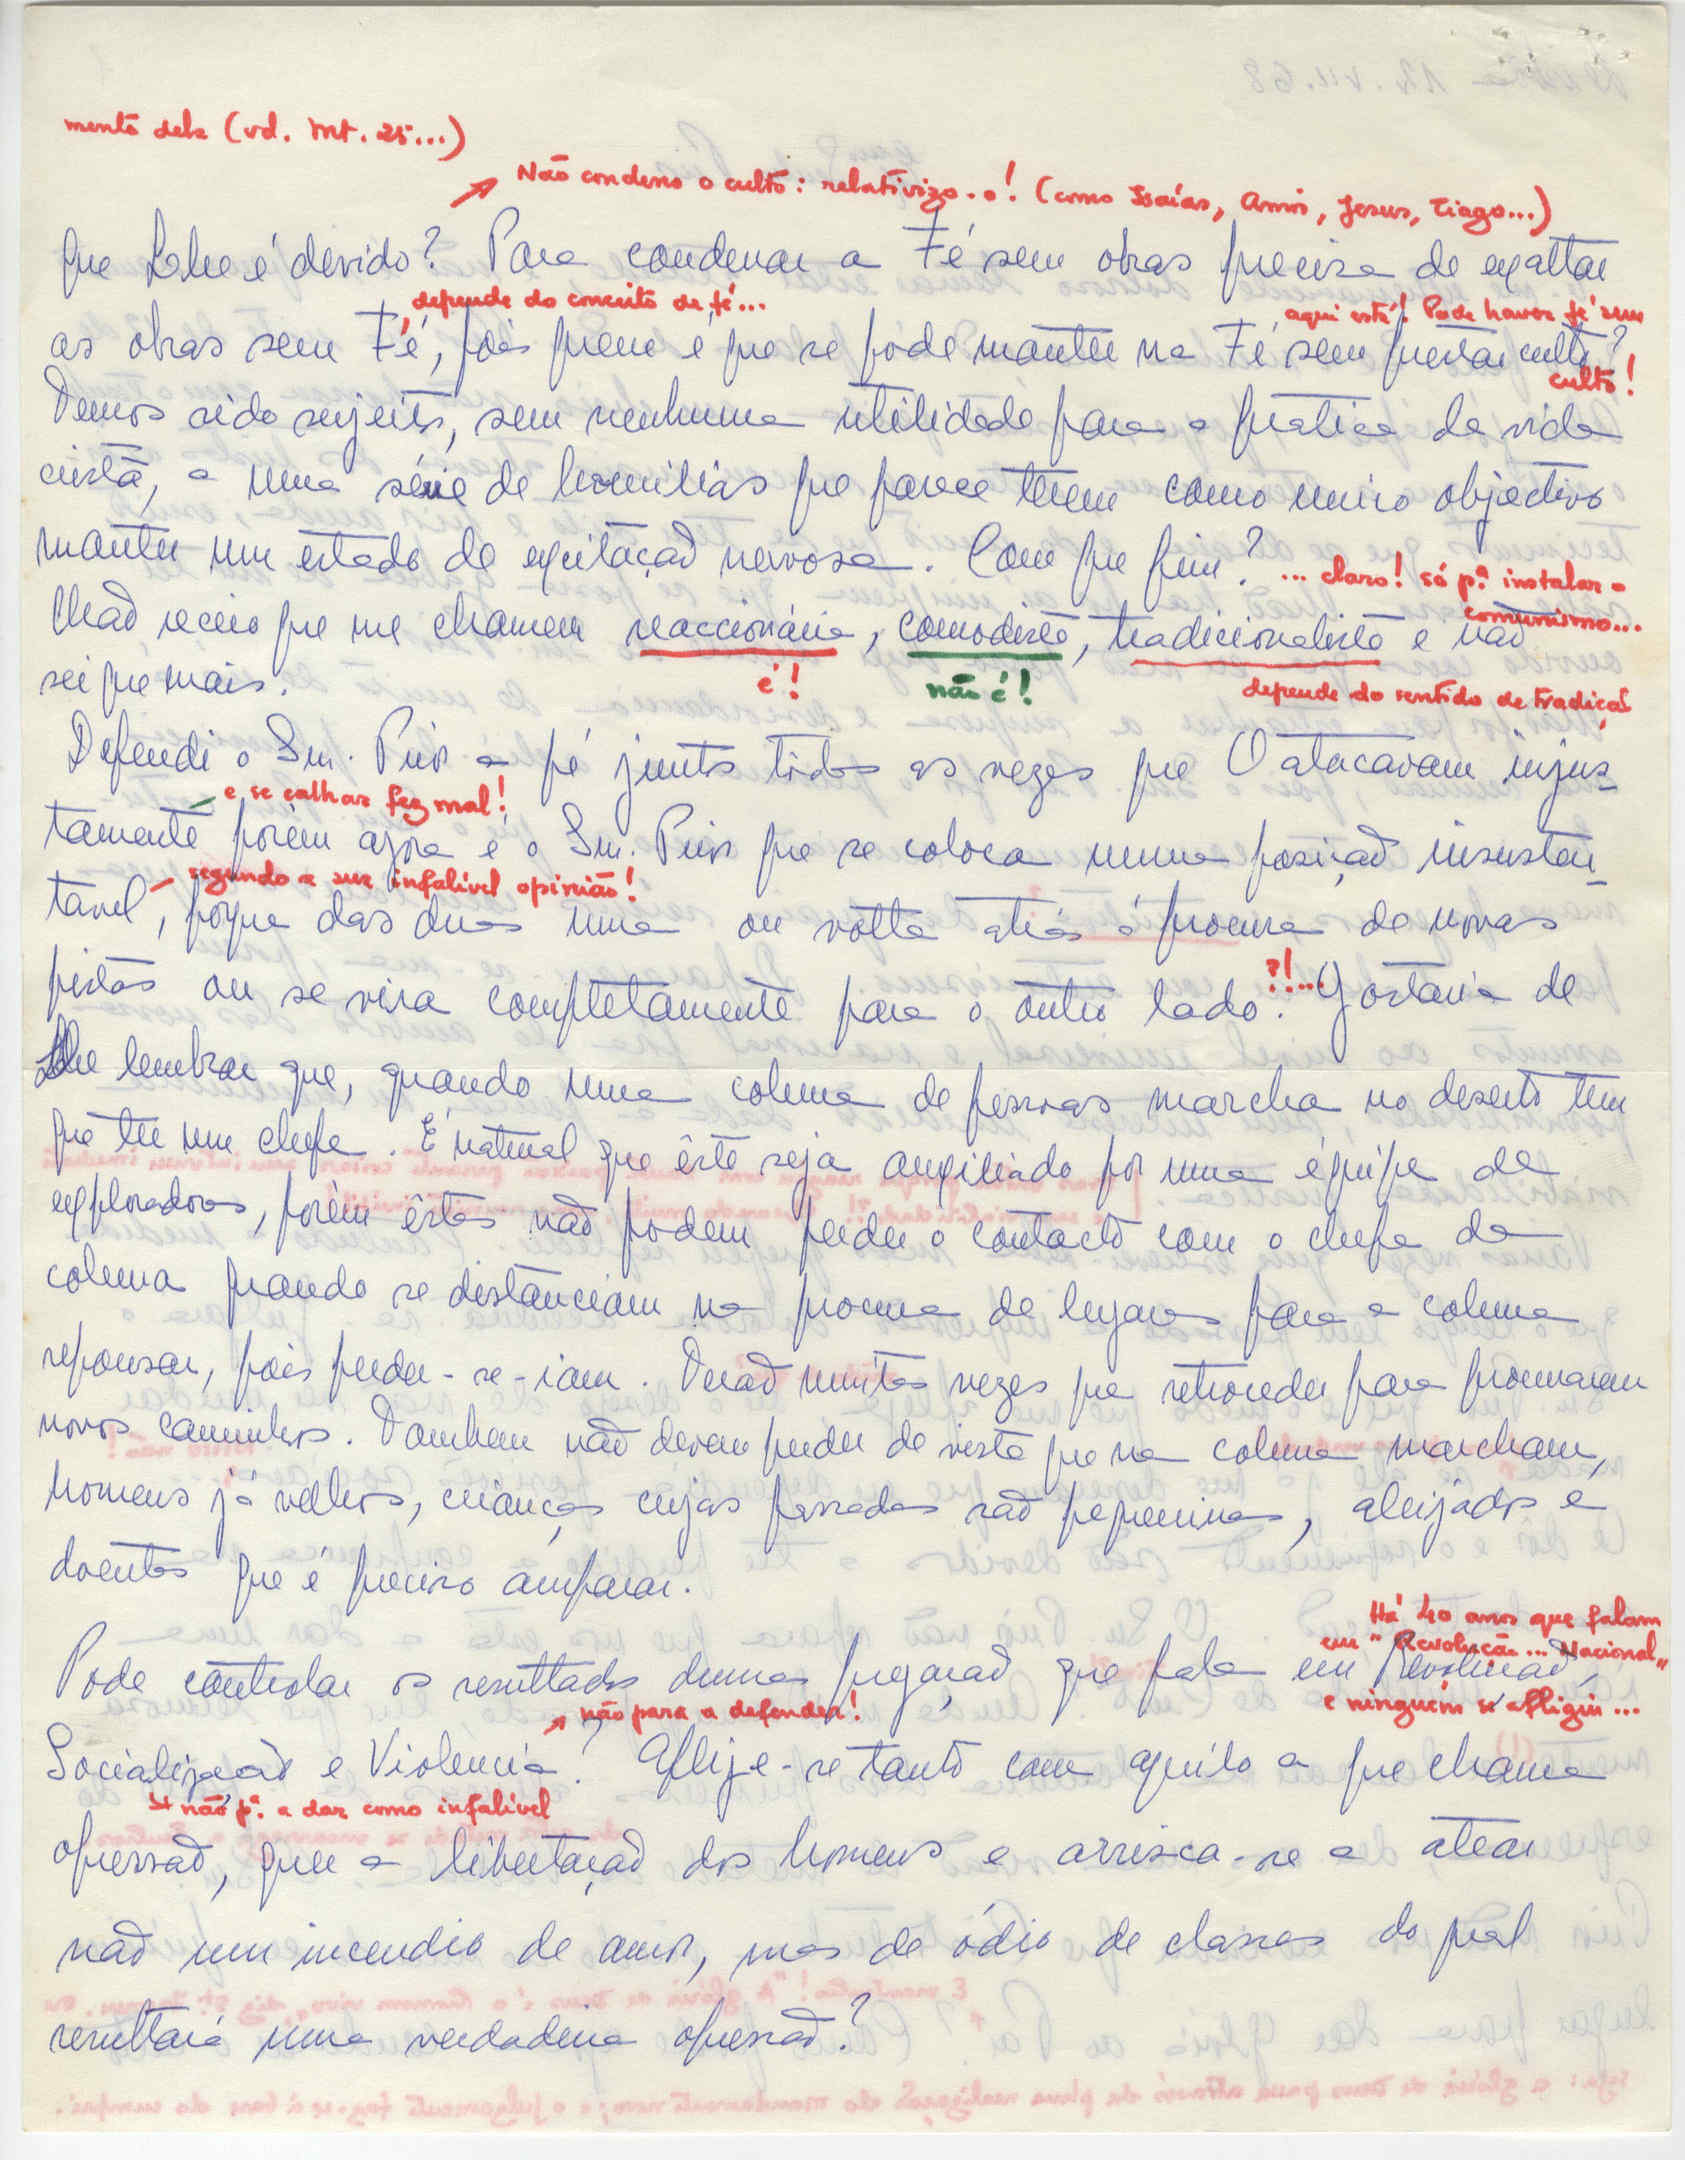 mento dele (vd. Mt. 25...)
Não condeno o culto: relativizo-o! (como Isaías, Amós, Jesus, Tiago...)
que Lhe é devido? Para condenar a Fé sem obras precisa de exaltar
depende do conceito de fé...
aqui está! Pode haver fé sem
as obras sem Fé, pois quem é que se pode manter na Fé sem prestar culto?
culto!
Temos sido sujeitos, sem nenhuma utilidade para a prática da vida
cristã, a uma série de homilías que parece terem como unico objectivo
manter um estado de exitação nervosa. Com que fim?
... claro! só pª instalar o
comunismo...
Não receio que me chamem reaccionária, comodista, tradicionalista e não
sei que mais.
é!
não é!
depende do sentido de tradição
Defendi o Snr. Prior a pé junto todas as vezes que O atacavam injus-
e se calhar fez mal!
tamente porém agora é o Snr. Prior que se coloca numa posição insusten-
segundo a sua infalível opinião!
tavel, porque das duas uma ou volta atrás á procura de novas
pistas ou se vira completamente para o outro lado. ?!... Gostaria de
Lhe lembrar que, quando uma coluna de pessoas marcha no deserto tem
que ter um chefe. É natural que êste seja auxiliado por uma équipe de
exploradores, porém êstes não podem perder o contacto com o chefe da
coluna quando se distânciam na procura de lugares para a coluna
repousar, pois perder-se-iam. Terão muitas vezes que retroceder para procurarem
novos caminhos. Tambem não devem perder de vista que na coluna marcham,
homens já velhos, crianças cujas passadas são pequeninas, aleijados e
doentes que é preciso amparar.
Há 40 anos que falam
em "Revolução... Nacional"
Pode controlar os resultados duma pregação que fala em Revolução,
e ninguém se afligiu...
não para a defender!
Socialização e Violencia? Aflije-se tanto com aquilo a que chama
não pª a dar como infalível
opressão, quer a libertação dos homens e arrisca-se a atear
não um incendio de amor, mas de ódio de classes do qual
resultará uma verdadeira opressão?